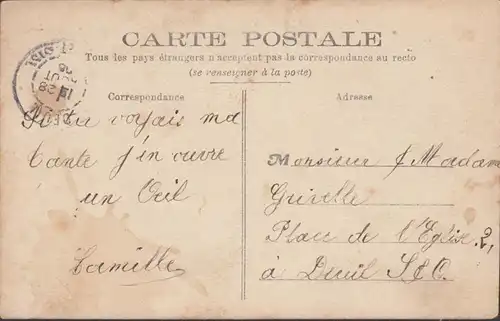 CARTE POSTALE
Tous les pays étrangers n'acceptent pas la correspondance au recto
(se renseigner à la poste)
Correspondance
Adresse
Si tu voyais ma
tante j'en ouvre
un Œil
Camille
Monsieur & Madame
Grivelle
Place de l'Eglise 2,
à Deuil S&O.